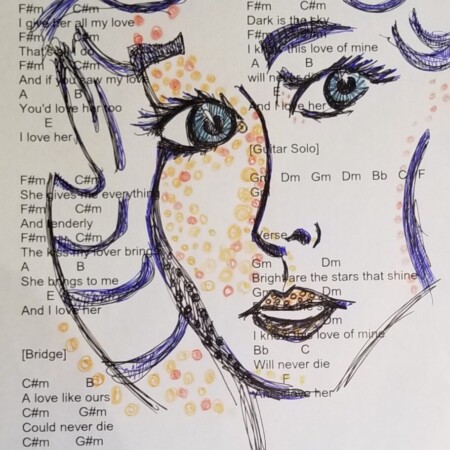 F#m C#m
I give her all my love
F#m C#m
That's I do
F#m C#m
And if you saw my love
A B
You'd love her too
E
I love her
F#m C#m
She gives me everything
F#m C#m
And tenderly
F#m C#m
The kiss my lover brings
A B
She brings to me
E
And I love her
[Bridge]
C#m B
A love like ours
C#m G#m
Could never die
C#m G#m
F#m C#m
Dark is the sky
F#m
I know this love of mine
A B
will never die
E
And I love her
[Guitar Solo]
Gm Dm Gm Dm Bb C F
Gm
Verse
Gm Dm
Bright are the stars that shine
Gm Dm
Dm
I know this love of mine
Bb C
Will never die
F
And I love her